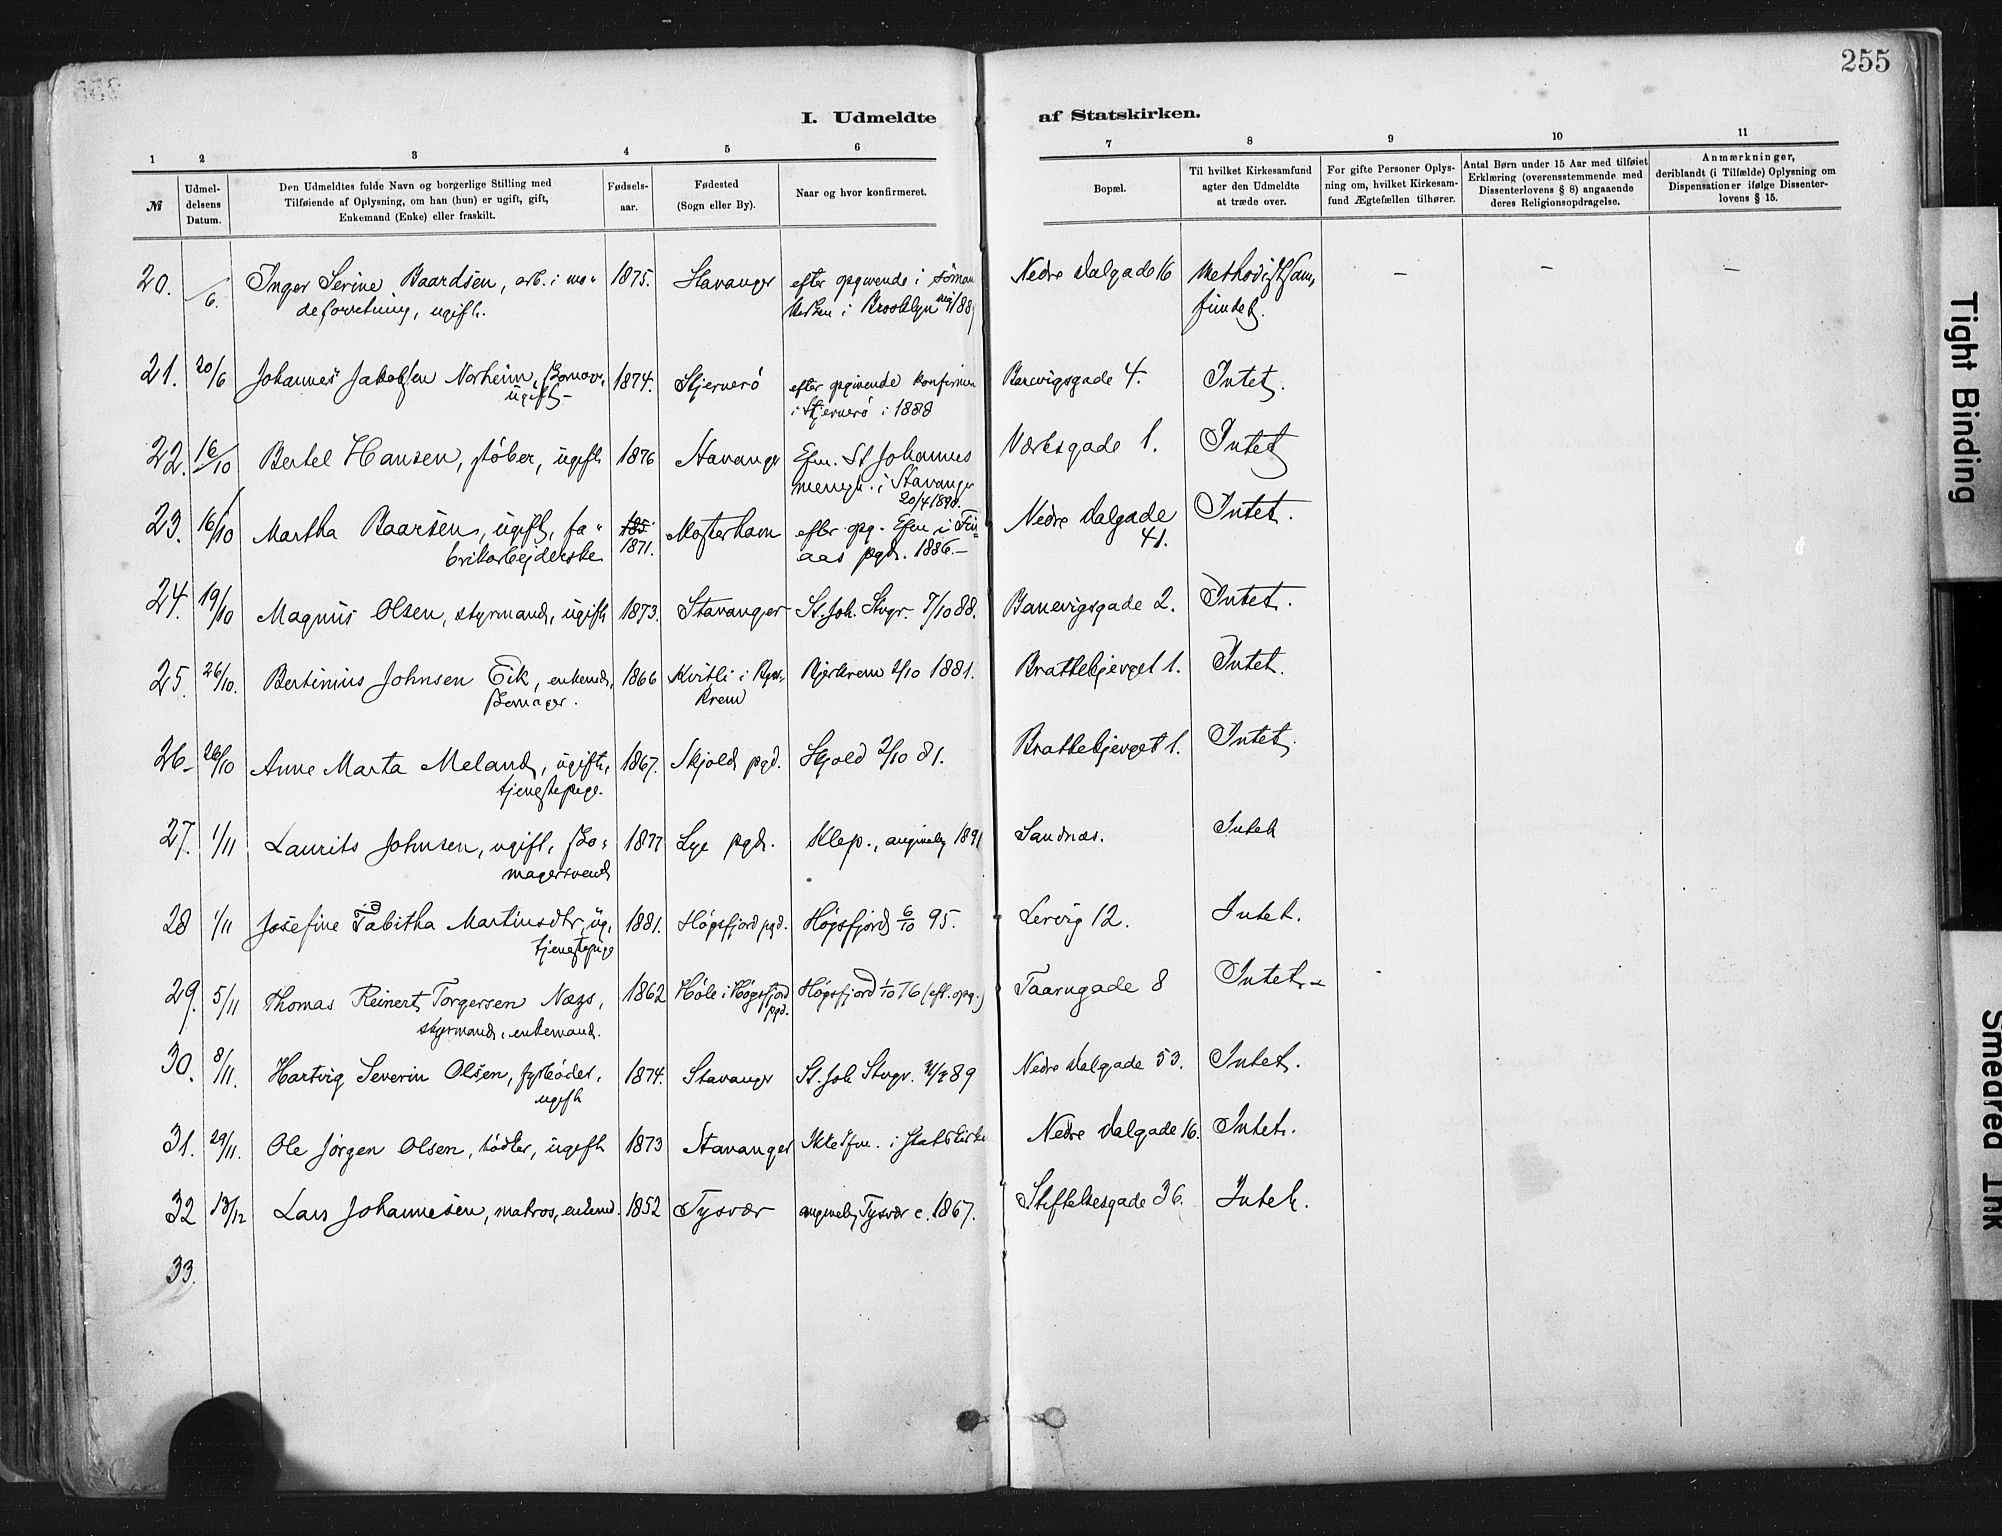 255
I. Udmeldte af Statskirken.
1 2 3 4 5 6 7 8 9 10 11
№
Udmel-
delsens
Datum.
Den Udmeldtes fulde Navn og borgerlige Stilling med
Tilføiende af Oplysning, om han (hun) er ugift, gift,
Enkemand (Enke) eller fraskilt.
Fødsels-
aar.
Fødested
(Sogn eller By).
Naar og hvor konfirmeret.
Bopæl.
Til hvilket Kirkesamfund
agter den Udmeldte
at træde over.
For gifte Personer Oplys-
ning om, hvilket Kirkesam-
fund Ægtefællen tilhører.
Antal Børn under 15 Aar med tilføiet
Erklæring (overensstemmende med
Dissenterlovens § 8) angaaende
deres Religionsopdragelse.
Anmærkninger,
deriblandt (i Tilfælde) Oplysning om
Dispensationer ifølge Dissenter-
lovens § 15.
20. /6. Inger Serine Baardsen, arb. i mo- 1875. Stavanger efter opgivende i Nedre Dalgade 16 Methodistsam, – – –
deforretning, ugift. i Brooklyn fundet.
21. 20/6 Johannes Jakobsen Norheim, 1874. Stjernerø efter opgivende Banevigsgade 4. Intet.
ugift – i Stjernerø i 1888
22. 16/10 Bertel Hansen, støber, ugift 1876 Stavanger Efm. St Johannes Værksgade 1. Intet
menigh. i Stavanger
20/4 1890.
23. 16/10 Martha Baarsen, ugift, fa- 185 Mosterhavn efter opg. Efm. i Fin- Nedre Dalgade Intet.
brikarbejderske 1871. aas pgd. 1886.– 41.
24. 19/10 Magnus Olsen, styrmand, ugift 1873. Stavanger St. Joh. Stvgr. 7/10 88. Banevigsgade 2. Intet.
25. 26/10. Bertinius Johnsen Eik, enkemd, 1866 Kvitli i Bjerkrem 2/10 1881. Brattebjerget 1. Intet.
26– 26/10 Anne Marta Meland, ugift, 1867. Skjold pgd. Skjold 2/10 81. Brattebjerget 1. Intet.
tjenestepige.
27. 1/11 Laurits Johnsen, ugift, sko- 1877 Lye pgd. Klep., angivelig 1891 Sandnæs. Intet
magersvend
28 1/11 Josefine Tabitha Martinsdtr, ug, 1881. Høgsfjord pgd. Høgsfjord 6/10 95. Lervig 12. Intet.
tjenestepige
29. 5/11 Thomas Reinert Torgersen Næss, 1862 Høle i Høgsfjord Høgsfjord 1/10 76 (eft. opg.) Taarngade 8 Intet–
styrmand, enkemand. pgd.
30. 8/11. Hartvig Severin Olsen, fyrbøder, 1874. Stavanger St. Joh Stvgr. 89 Nedre Dalgade 53. Intet.
ugift
31. 29/11. Ole Jørgen Olsen, bødker, ugift 1873 Stavanger Ikke Efm. i Statskirke Nedre Dalgade 16. Intet.
32 13/12 Lars Johannesen, matros, enkemd. 1852 Tysvær angivelig Tysvær c. 1867. Stiftelsesgade 36. Intet.
33.
Tight Binding
Smeared Ink